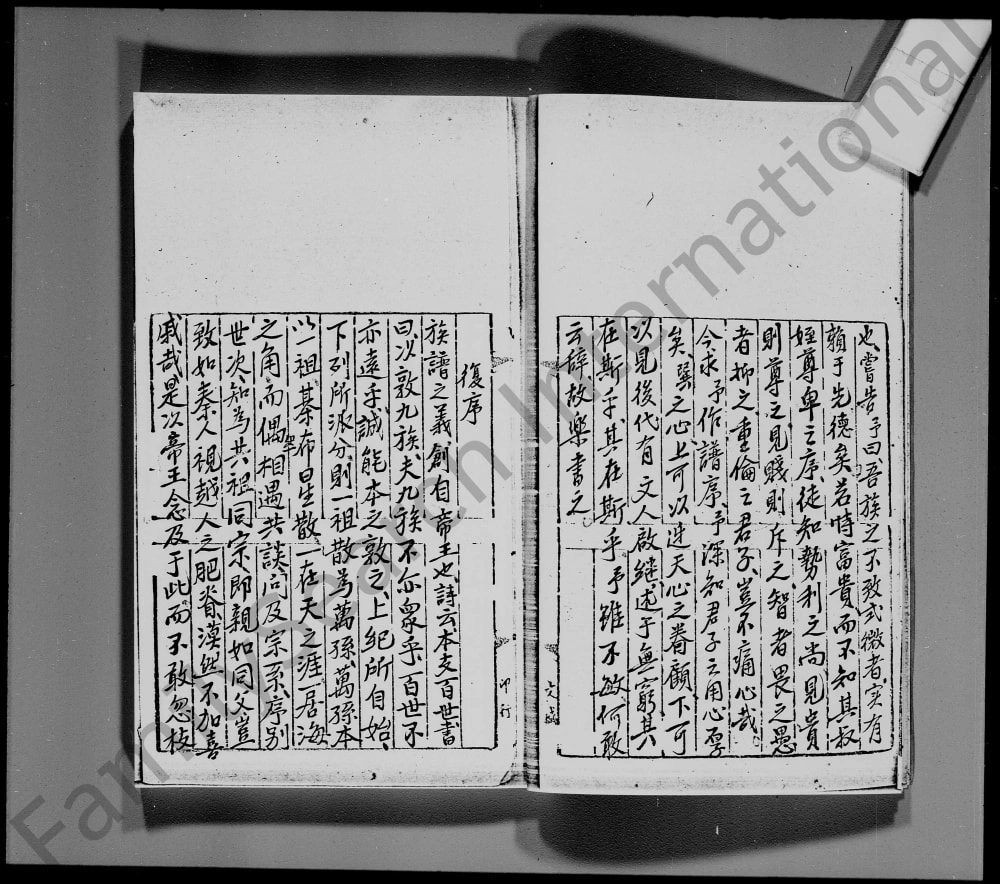 也嘗告予曰吾族之不致式微者实有
賴于先德矣若恃富貴而不知其叔
姪尊卑之序徒知勢利之尚見貴
則尊之見賤則斥之智者畏之愚
者抑之重倫之君子豈不痛心哉
今求予作譜序予深知君子之用心厚
矣巽之心上可以迓天心之眷顧下可
以見後代有文人啟继述于無窮其
在斯乎其在斯乎予雖不敏何敢
云辞故樂書之
復序
族譜之義創自帝王也詩云本支百世書
曰以敦九族夫九族不亦衆乎百世不
亦遠乎誠能本之敦之上紀所自始
下列所派分則一祖散為萬孫萬孫本
以一祖棊布星散一在天之涯一居海
之角而偶相遇共談问及宗系序别
世次知為共祖同宗即親如同父豈
致如秦人視越人之肥脊漠然不加喜
戚哉是以帝王念及于此而不敢忽枝
印行
FamilySearch International